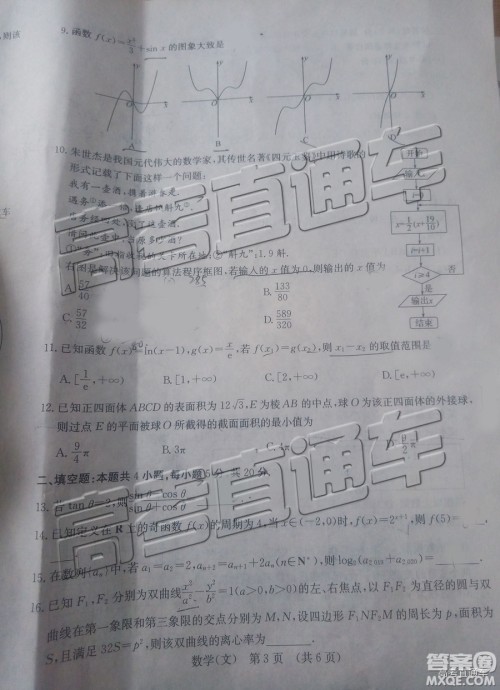 ,则该
9. 函数 f(x)=x³/3+sin x 的图象大致是
A B C D
10. 朱世杰是我国元代伟大的数学家,其传世名著《四元玉鉴》中用诗歌的
形式记载了下面这样一个问题:
我有一壶酒,携着游春走.
酒,店饮斛九.
壶酒.
壶中酒,
1.9 斛.
右图是解决该问题的算法程序框图,若输入的 x 值为 0,则输出的 x 值为
A. 57/40 B. 133/80
C. 57/32 D. 589/320
开始
输入
x=1/2(x+19/10)
i=i+1
i≥4
否
是
输出x
结束
文车
11. 已知函数 f(x)=ln(x-1),g(x)=x/e,若 f(x₁)=g(x₂),则 x₁-x₂ 的取值范围是
A. [1/e,+∞) B. [1,+∞) C. [2,+∞) D. [e,+∞)
12. 已知正四面体 ABCD 的表面积为 12√3,E 为棱 AB 的中点,球 O 为该正四面体的外接球,
则过点 E 的平面被球 O 所截得的截面面积的最小值为
A. 9/4π B. 3π
二、填空题:本题共 4 小题,每小题 5 分,共 20 分.
13. 若 tan θ=2,则 sin θ cos θ
14. 已知定义在 R 上的奇函数 f(x) 的周期为 4,当 x∈(-2,0)时,f(x)=2ˣ⁺¹,则 f(5)=
15. 在数列{aₙ}中,若 a₁=a₂=2,aₙ₊₂=aₙ₊₁+2aₙ(n∈N*),则 log₂(a₂₀₁₉+a₂₀₂₀)=
16. 已知 F₁,F₂ 分别为双曲线 x²/a²-y²/b²=1(a>0,b>0)的左、右焦点,以 F₁F₂ 为直径的圆与双
曲线在第一象限和第三象限的交点分别为 M,N,设四边形 F₁NF₂M 的周长为 p,面积为
S,且满足 32S=p²,则该双曲线的离心率为
数学(文) 第 3 页 (共 6 页)
高考直通车
高考直通车
答案圈
MXQE.COM